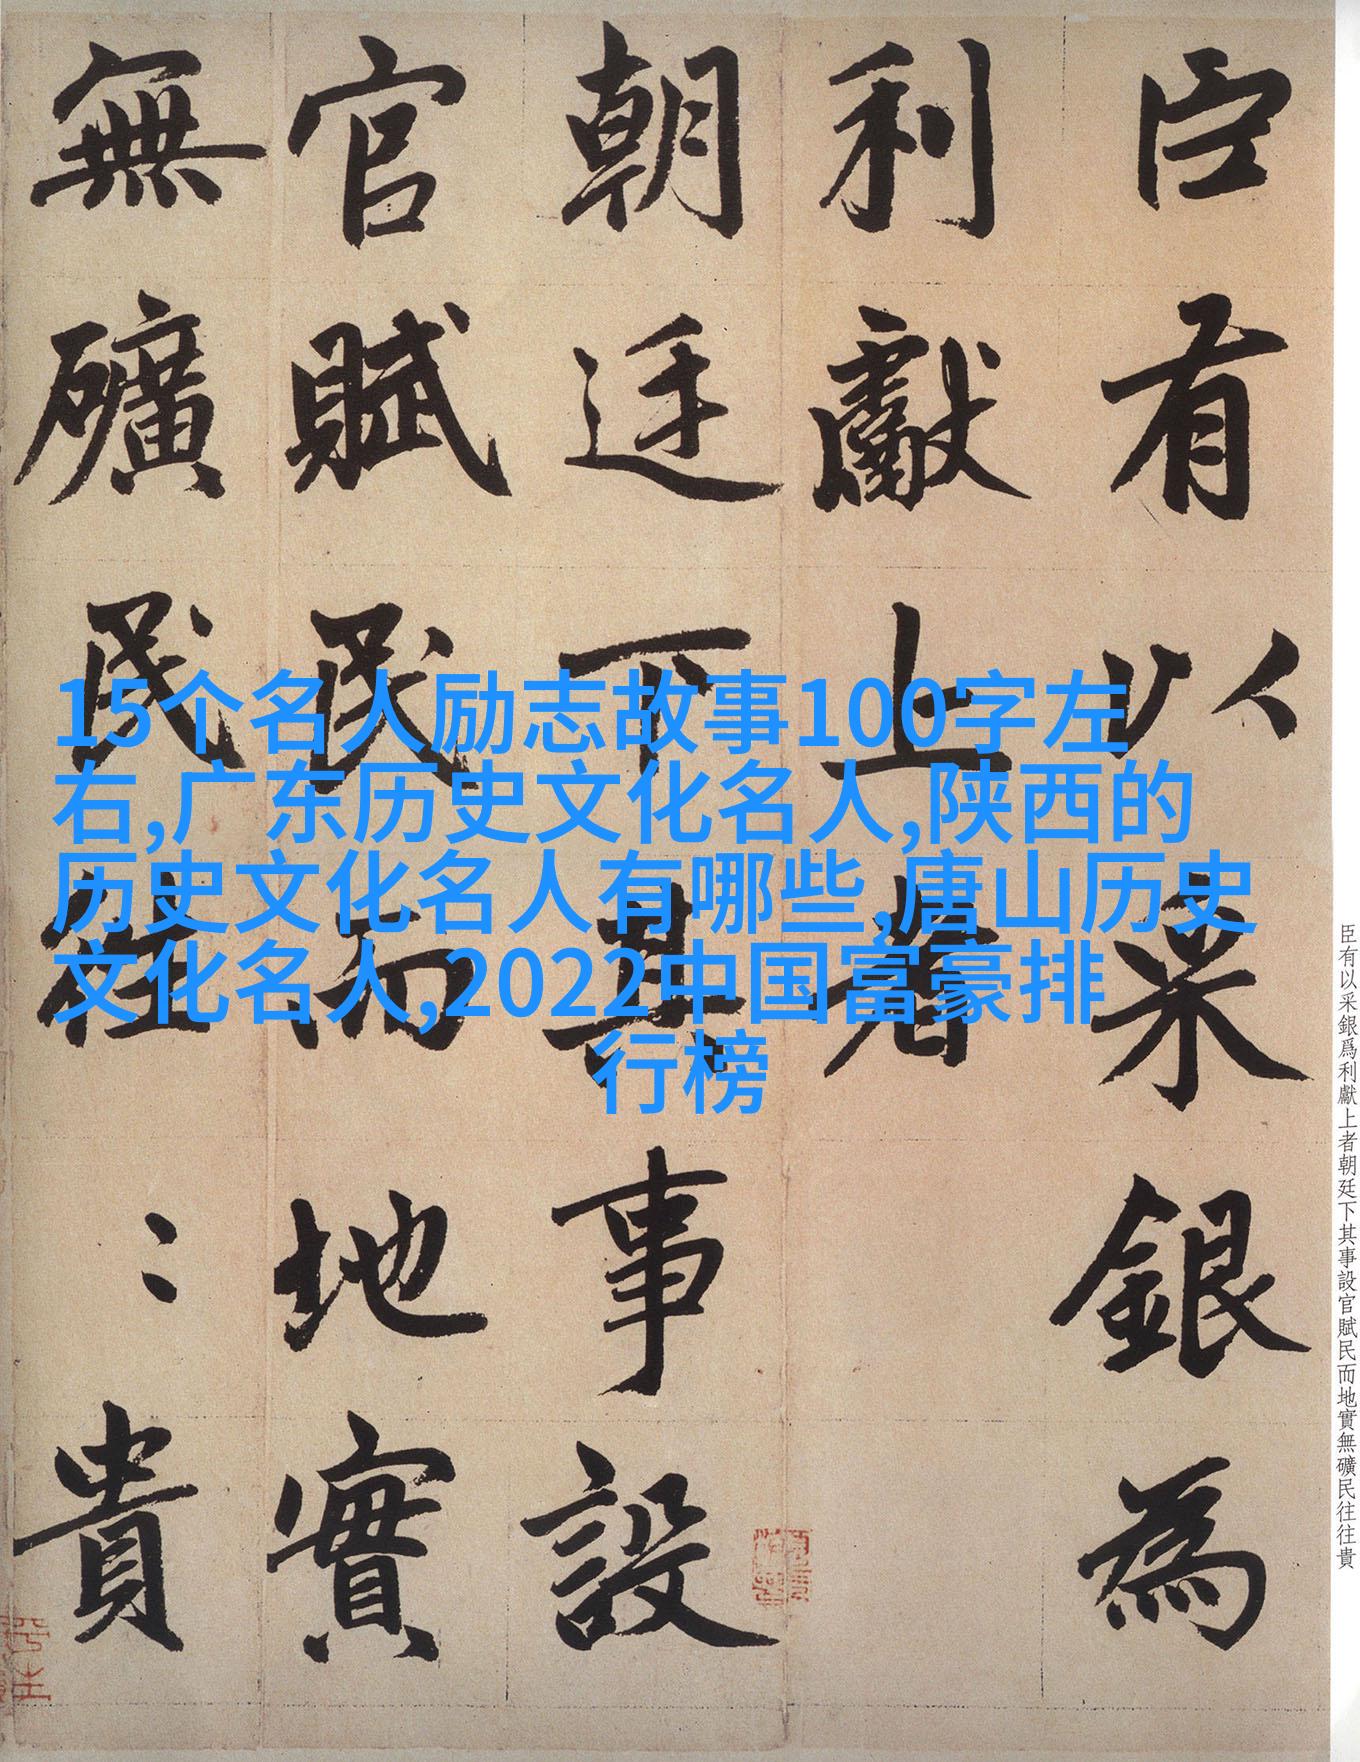 臣有以采銀為
利獻上者
朝廷下其事設
官賦民而地實
無礦民往〻貴
15个名人励志故事100字左
右,广东历史文化名人,陕西的
历史文化名人有哪些,唐山历史
文化名人,2022中国富豪排
行榜
臣有以采銀爲利獻上者朝廷下其事設官賦民而地實無礦民往往貴